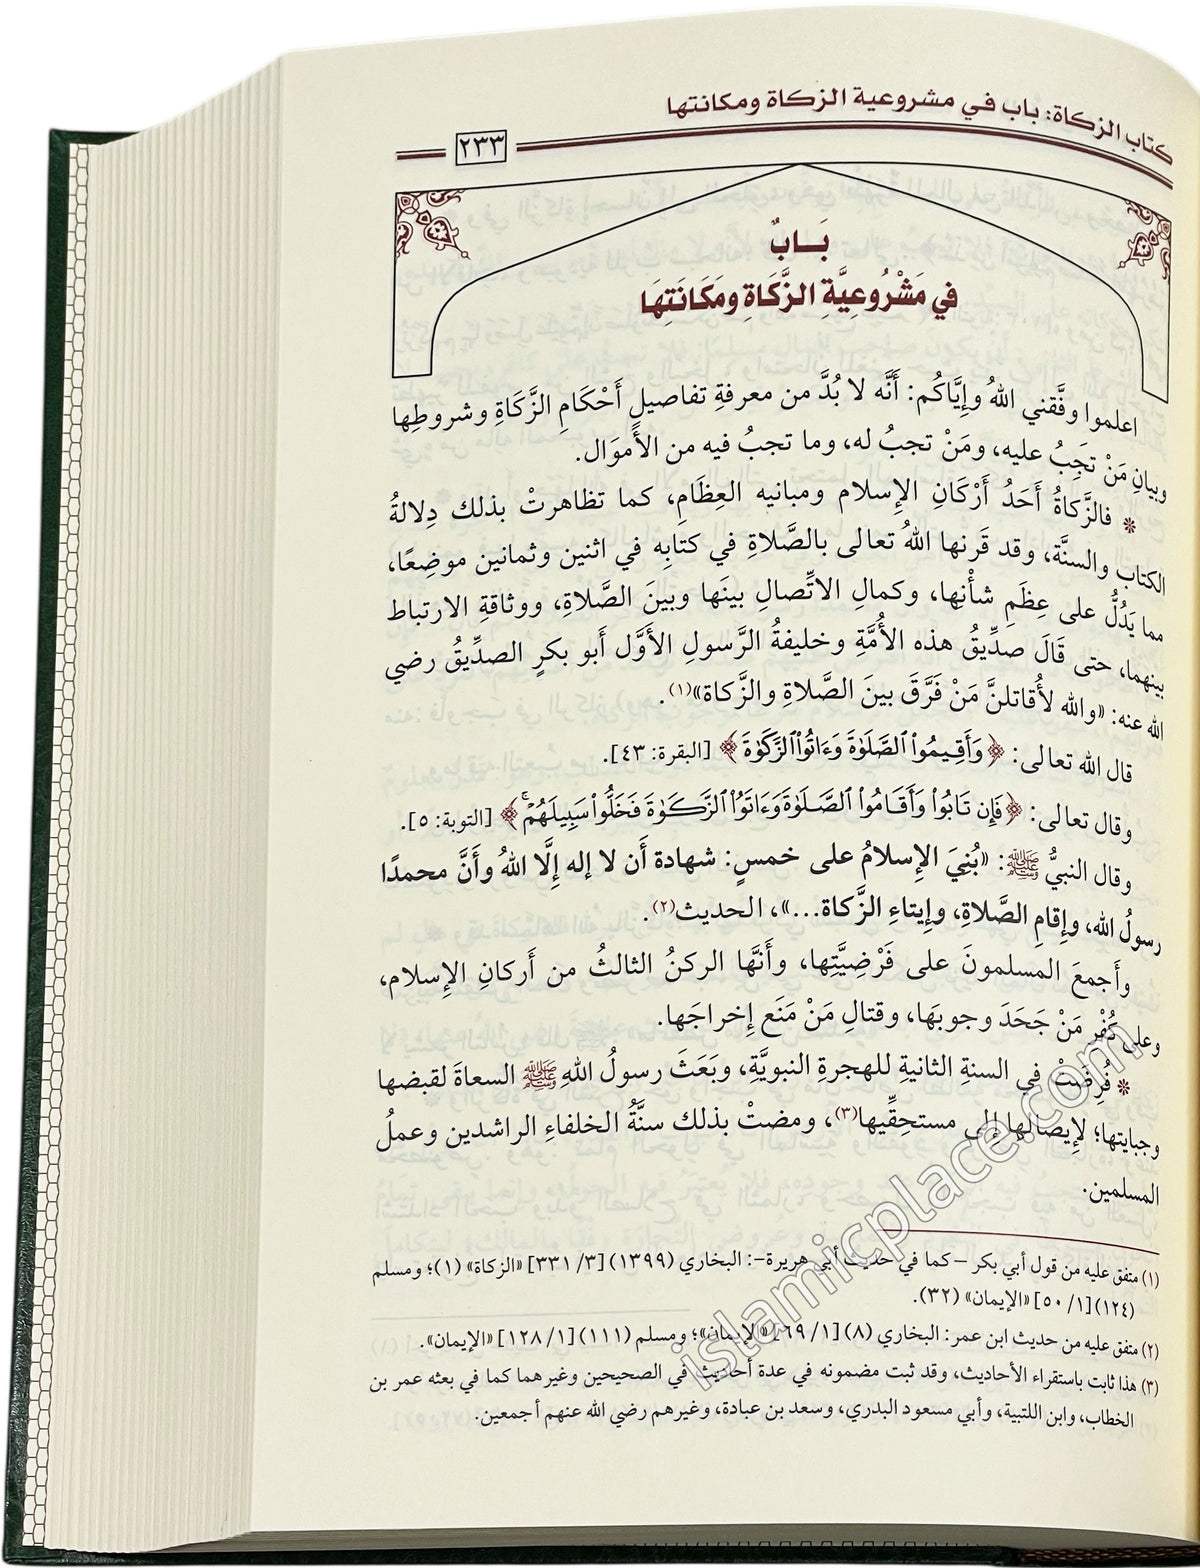 كتاب الزكاة: باب في مشروعية الزكاة ومكانتها
٢٣٣
بَـابٌ
في مَشْرُوعِيَّةِ الزَّكَاةِ ومَكَانَتِهَا
اعلموا وفَّقني اللهُ وإِيَّاكُم: أَنَّه لا بُدَّ من معرفةِ تفاصيلِ أَحْكَامِ الزَّكَاةِ وشروطِها
وبيانِ مَنْ تَجِبُ عليه، ومَنْ تجبُ له، وما تجبُ فيه من الأَموَال.
* فالزَّكاةُ أَحَدُ أَرْكَانِ الإِسلام ومبانيه العِظَامِ، كما تظاهرتْ بذلك دِلالةُ
الكتاب والسنَّة، وقد قَرنها اللهُ تعالى بالصَّلاةِ في كتابِه في اثنين وثمانين موضِعًا،
مما يَدُلُّ على عِظَمِ شأْنِها، وكمالِ الاتِّصالِ بينَها وبينَ الصَّلاةِ، ووثاقةِ الارتباط
بينهما، حتى قَالَ صدِّيقُ هذه الأُمَّةِ وخليفةُ الرَّسولِ الأَوَّل أَبو بكرٍ الصدِّيقُ رضي
الله عنه: «والله لأُقاتلنَّ مَنْ فَرَّقَ بينَ الصَّلاةِ والزَّكاة»(١).
قال الله تعالى: ﴿وَأَقِيمُوا۟ ٱلصَّلَوٰةَ وَءَاتُوا۟ ٱلزَّكَوٰةَ﴾ [البقرة: ٤٣].
وقال تعالى: ﴿فَإِن تَابُوا۟ وَأَقَامُوا۟ ٱلصَّلَوٰةَ وَءَاتَوُا۟ ٱلزَّكَوٰةَ فَخَلُّوا۟ سَبِيلَهُمْ ۚ﴾ [التوبة: ٥].
وقال النبيُّ ﷺ: «بُنِيَ الإِسلامُ على خمسٍ: شهادة أَن لا إله إِلَّا اللهُ وأَنَّ محمدًا
رسولُ الله، وإِقامِ الصَّلاةِ، وإِيتاءِ الزَّكاة...»، الحديث(٢).
وأَجمعَ المسلمونَ على فَرْضِيَّتِها، وأَنَّها الركنُ الثالثُ من أَركانِ الإِسلام،
وعلى كُفْرِ مَنْ جَحَدَ وجوبَها، وقتالِ مَنْ مَنَع إِخراجَها.
* فُرِضَتْ في السنةِ الثانيةِ للهجرةِ النبويَّةِ، وبَعَثَ رسولُ اللهِ ﷺ السعاةَ لقبضها
وجبايتها؛ لإِيصالها إِلى مستحِقِّيها(٣)، ومضتْ بذلك سنَّةُ الخلفاءِ الراشدين وعملُ
المسلمين.
(١) متفق عليه من قول أبي بكر – كما في حديث أبي هريرة–: البخاري (١٣٩٩) [٣/ ٣٣١] «الزكاة» (١)؛ ومسلم
(١٢٤) [١/ ٥٠] «الإيمان» (٣٢).
(٢) متفق عليه من حديث ابن عمر: البخاري (٨) [١/ ٦٩] «الإيمان»؛ ومسلم (١١١) [١/ ١٢٨] «الإيمان».
(٣) هذا ثابت باستقراء الأحاديث، وقد ثبت مضمونه في عدة أحاديث في الصحيحين وغيرهما كما في بعثه عمر بن
الخطاب، وابن اللتبية، وأبي مسعود البدري، وسعد بن عبادة، وغيرهم رضي الله عنهم أجمعين.
islamicplace.com